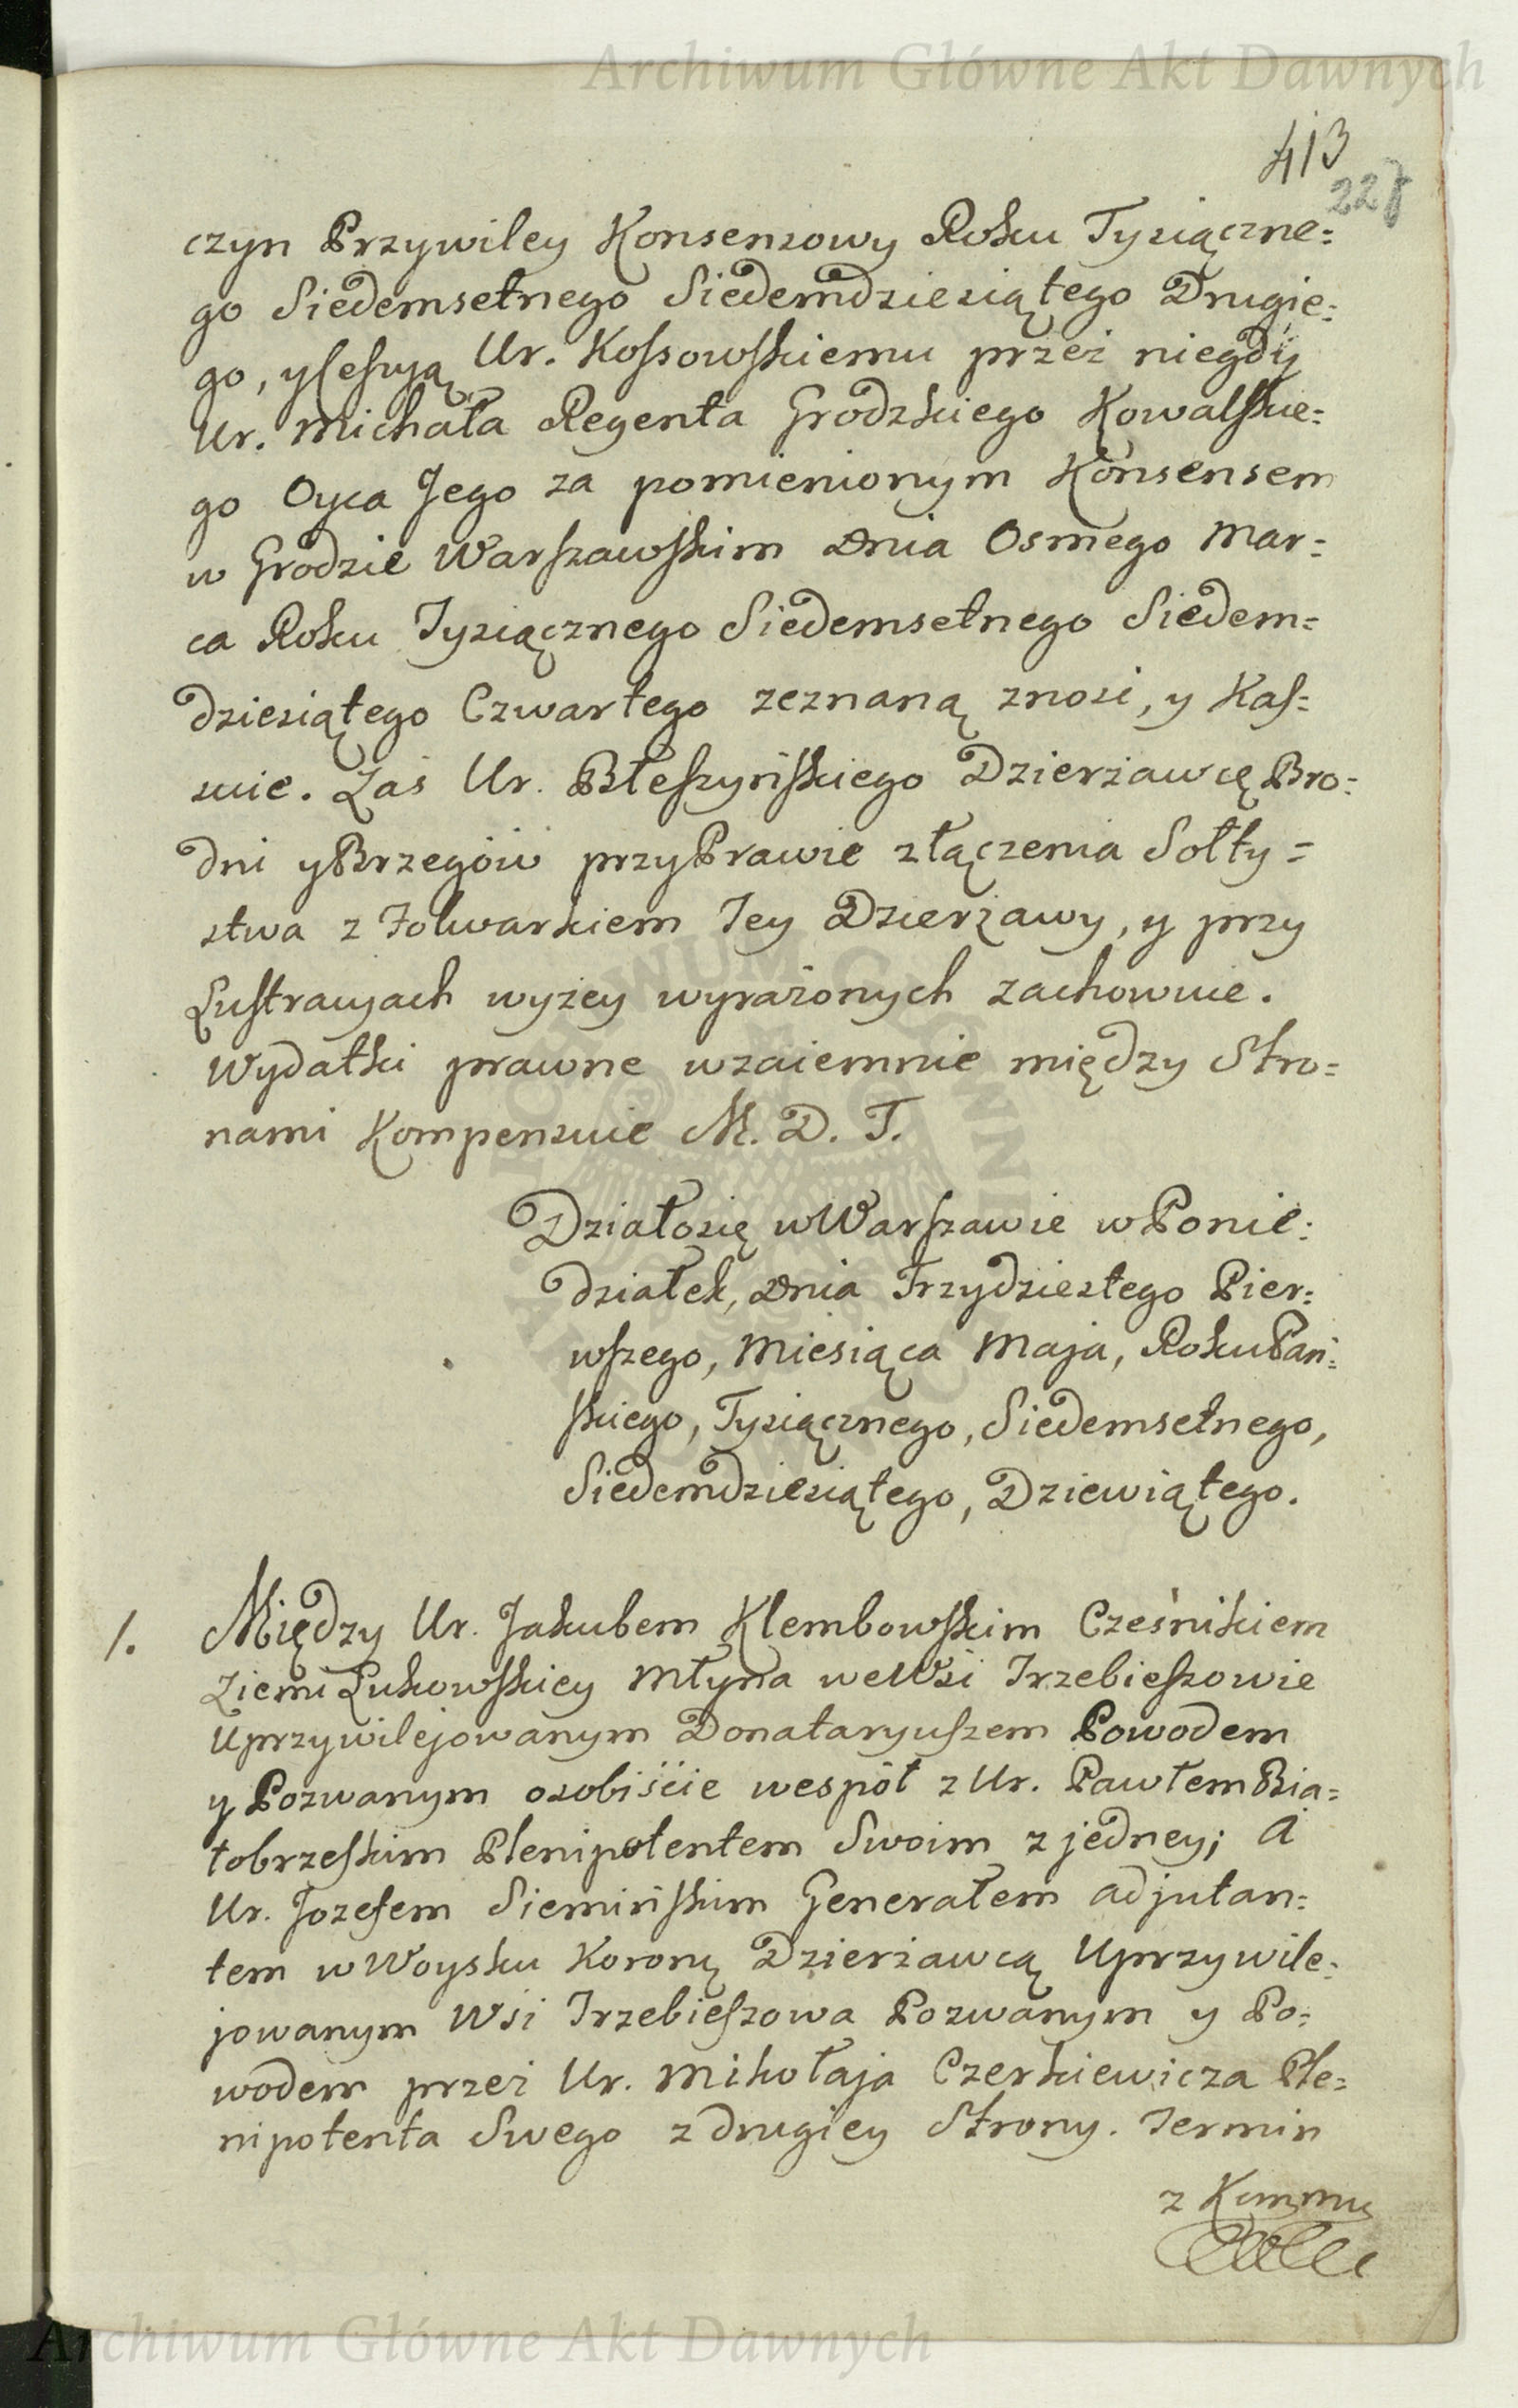 Archiwum Główne Akt Dawnych
413
227
czyn Przywiley Konsensowy Roku Tysiączne=
go Siedemsetnego Siedemdziesiątego Drugie=
go, y Cessyą Ur. Kossowskiemu przez niegdy
Ur. Michała Regenta Grodzkiego Kowalskie=
go Oyca Jego za pomienionym Konsensem
w Grodzie Warszawskim Dnia Osmego Mar=
ca Roku Tysiącznego Siedemsetnego Siedem=
dziesiątego Czwartego zeznaną znosi, y Kas=
suie. Zaś Ur. Błeszyńskiego Dzierżawcę Bro=
dni y Brzegów przy Prawie złączenia Sołty=
stwa z Folwarkiem Jey Dzierżawy, y przy
Lustracyach wyżey wyrażonych zachowuie.
Wydatki prawne wzaiemnie między Stro=
nami Kompensuie M. D. T.
Działo się w Warszawie w Ponie=
działek, Dnia Trzydziestego Pier=
wszego, Miesiąca Maja, Roku Pań=
skiego, Tysiącznego, Siedemsetnego,
Siedemdziesiątego, Dziewiątego.
1. Między Ur. Jakubem Klembowskim Cześnikiem
Ziemi Łukowskiey Młyna we Wsi Trzebieszowie
Uprzywilejowanym Donataryuszem Powodem
y Pozwanym osobiście wespół z Ur. Pawłem Bia=
łobrzeskim Plenipotentem Swoim z jedney; A
Ur. Jozefem Siemińskim Generałem adjutan=
tem w Woysku Koronų Dzierżawcą Uprzywile=
jowanym Wsi Trzebieszowa Pozwanym y Po=
wodem przez Ur. Mikołaja Czerkiewicza Ple=
nipotenta Swego z drugiey Strony. Termin
z Kommų
Archiwum Główne Akt Dawnych